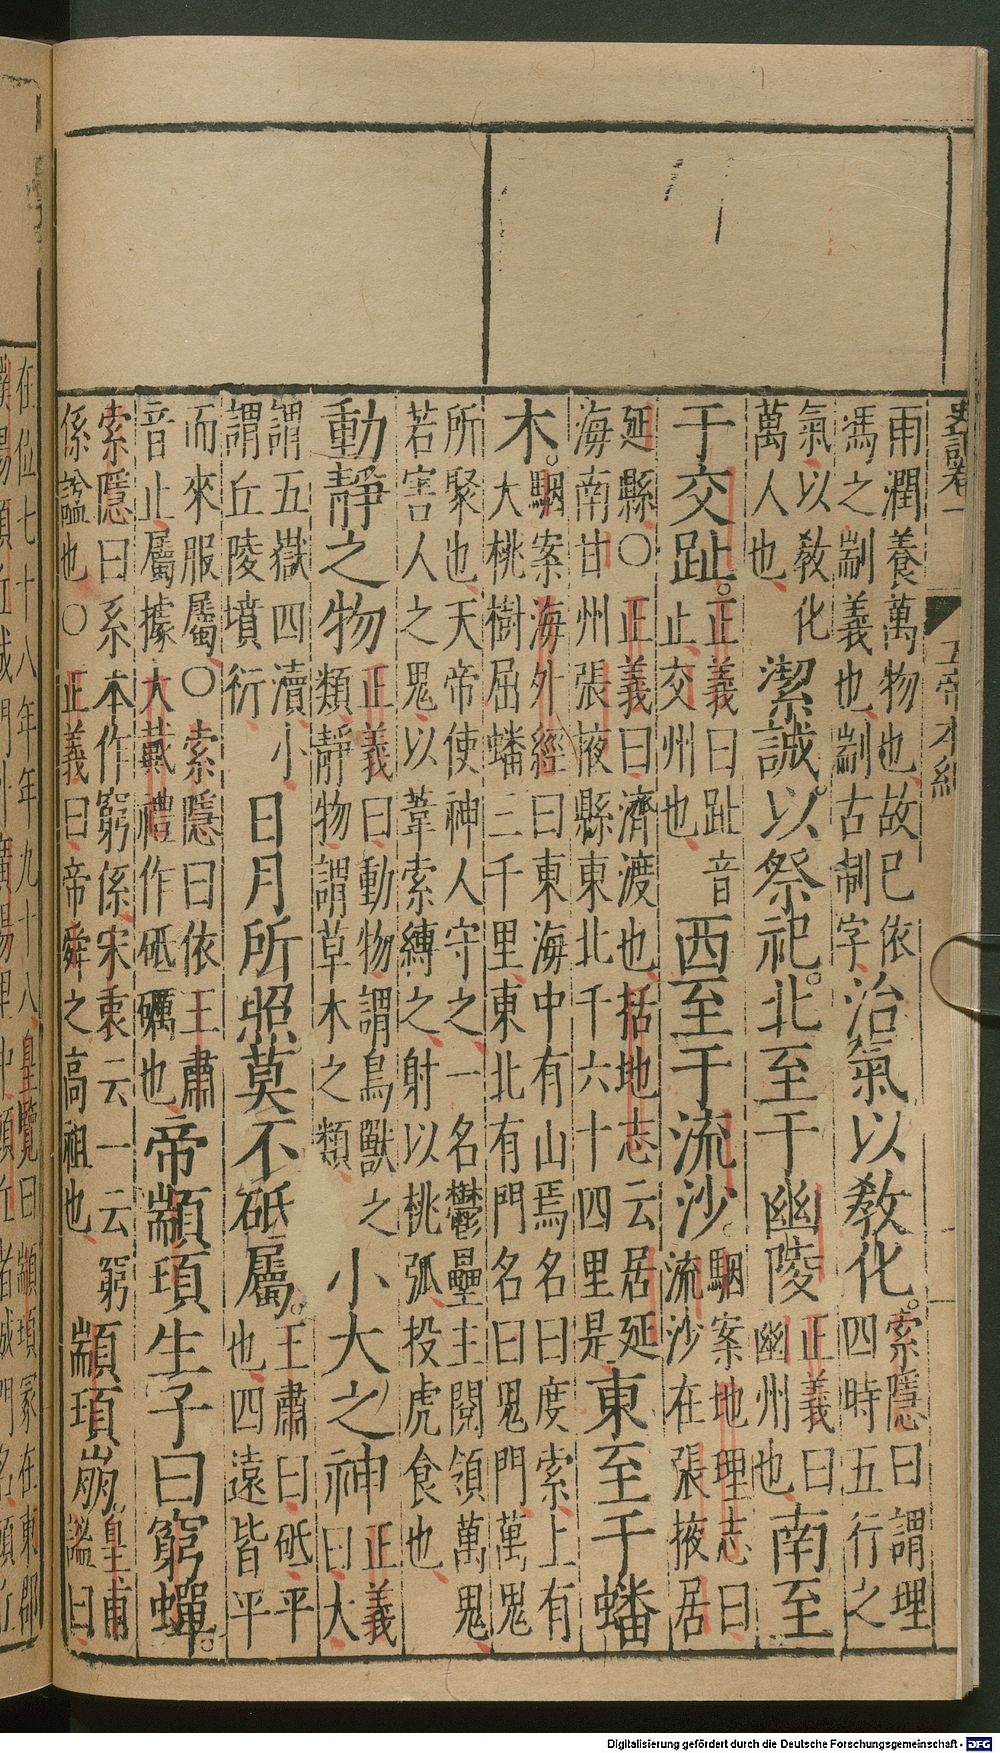 史記卷一 五帝本紀
雨潤養萬物也故已依
馮之剬義也剬古制字
治氣以教化。
索隱曰謂理
四時五行之
氣以教化
萬人也
潔誠。以祭祀。北至于幽陵
正義曰
幽州也
南至
于交趾。
正義曰趾音
止交州也
西至于流沙。
駰案地理志曰
流沙在張掖居
延縣○正義曰濟渡也括地志云居延
海南甘州張掖縣東北千六十四里是
東至于蟠
木。
駰案海外經曰東海中有山焉名曰度索上有
大桃樹屈蟠三千里東北有門名曰鬼門萬鬼
所聚也天帝使神人守之一名鬱壘主閱領萬鬼
若害人之鬼以葦索縛之射以桃弧投虎食也
動靜之物
正義曰動物謂鳥獸之
類靜物謂草木之類
小大之神
正義
曰大
謂五嶽四瀆小
謂丘陵墳衍
日月所照莫不砥屬。
王肅曰砥平
也四遠皆平
而來服屬○索隱曰依王肅
音止屬據大戴禮作砥礪也
帝顓頊生子曰窮蟬。
索隱曰系本作窮係宋衷云一云窮
係謚也○正義曰帝舜之高祖也
顓頊崩
皇甫
謐曰
在位七十八年年九十八皇覽曰顓頊冢在東郡
Digitalisierung gefördert durch die Deutsche Forschungsgemeinschaft - DFG